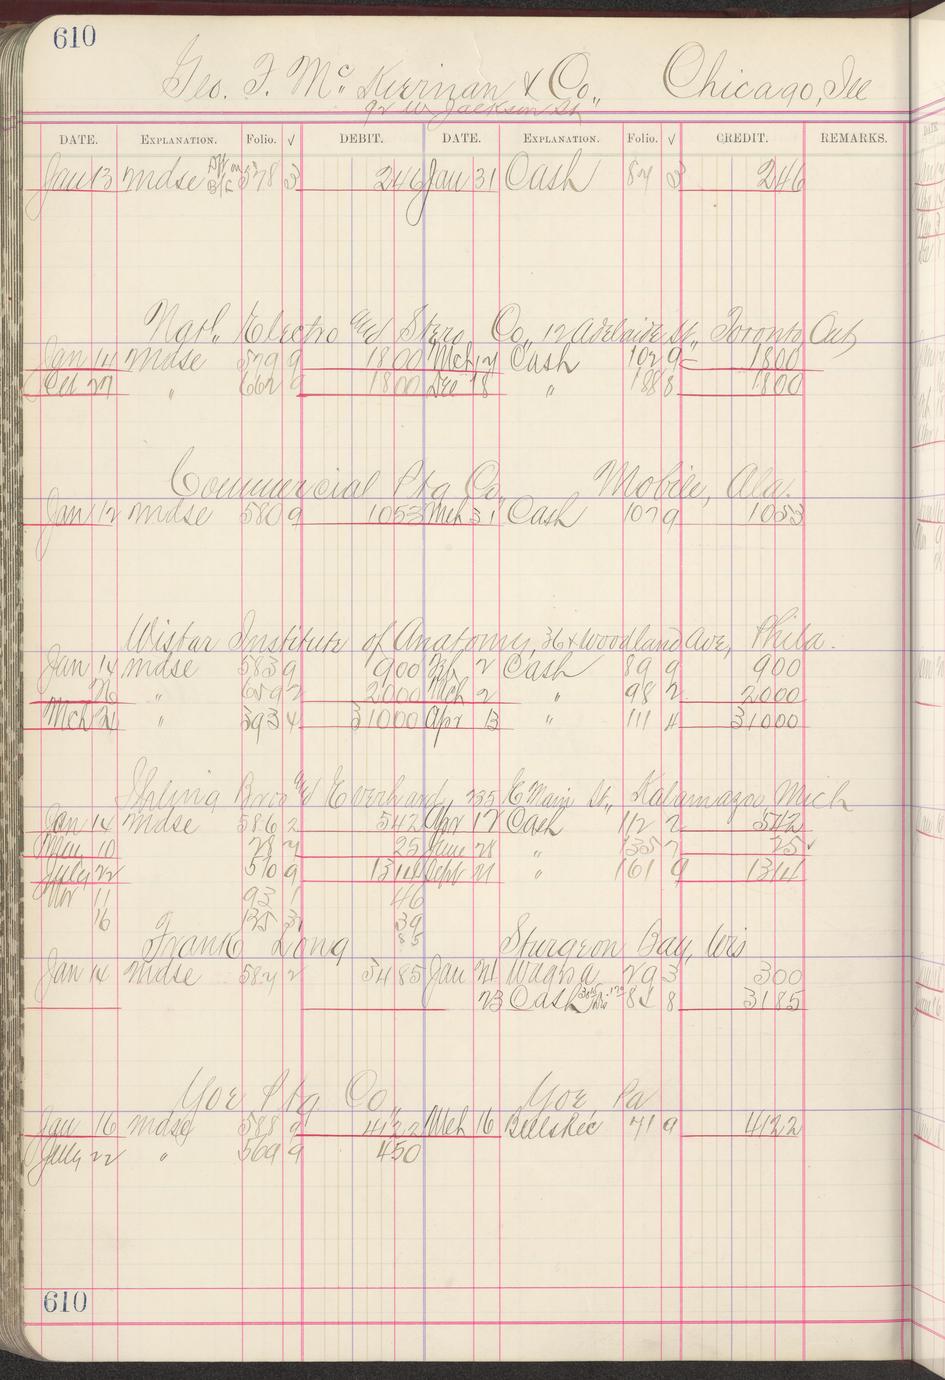 610
Geo. F. McKiernan & Co., Chicago, Ill
92 W. Jackson St.
DATE. EXPLANATION. Folio. √ DEBIT. DATE. EXPLANATION. Folio. √ CREDIT. REMARKS.
Jan 13 Mdse 578 3 246 Jan 31 Cash 87 3 246
Natl. Electro and Stero Co., 12 Adelaide St., Toronto, Ont
Jan 14 Mdse 579 9 1800 Mch 17 Cash 102 9 1800
Oct 27 " 662 9 1800 Dec 18 " 188 8 1800
Commercial Ptg Co., Mobile, Ala.
Jan 12 Mdse 580 9 1053 Mch 31 Cash 107 9 1053
Wistar Institute of Anatomy, 36 & Woodland Ave, Phila.
Jan 14 Mdse 583 9 900 Feb 2 Cash 89 9 900
26 " 659 2 2000 Mch 2 " 98 2 2000
Mch 21 " 393 4 31000 Apr 13 " 111 4 31000
Ihling Bros and Everhard, 235 E Main St., Kalamazoo, Mich
Jan 14 Mdse 586 2 542 Apr 17 Cash 112 2 542
May 10 28 7 25 June 28 " 135 7 25 ✓
July 22 570 9 1314 Sept 21 " 161 9 1314
Nov 11 93 1 46
16 125 3 39
85
Frank Long Sturgeon Bay, Wis
Jan 14 Mdse 587 2 3485 Jan 21 29 3 300
23 Cash 8 3185
Yoe Ptg Co., Yoe, Pa
Jan 16 Mdse 588 9 4122 Mch 16 Bills Rec 71 9 4122
July 22 " 569 9 450
610